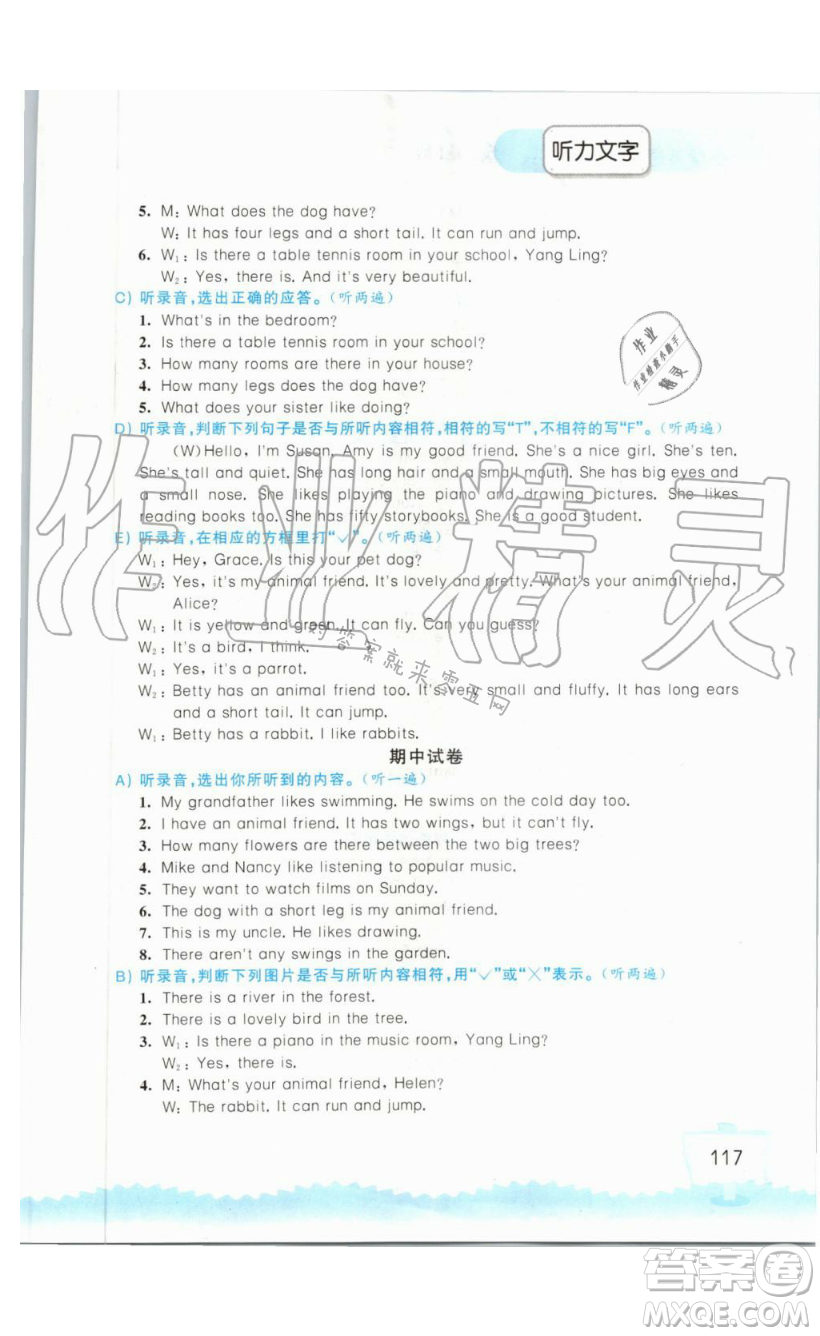 听力文字
5. M: What does the dog have?
W: It has four legs and a short tail. It can run and jump.
6. W₁: Is there a table tennis room in your school, Yang Ling?
W₂: Yes, there is. And it's very beautiful.
C) 听录音,选出正确的应答。(听两遍)
1. What's in the bedroom?
2. Is there a table tennis room in your school?
3. How many rooms are there in your house?
4. How many legs does the dog have?
5. What does your sister like doing?
D) 听录音,判断下列句子是否与所听内容相符,相符的写“T”,不相符的写“F”。(听两遍)
(W)Hello, I'm Susan. Amy is my good friend. She's a nice girl. She's ten.
She's tall and quiet. She has long hair and a small mouth. She has big eyes and
a small nose. She likes playing the piano and drawing pictures. She likes
reading books too. She has fifty storybooks. She is a good student.
E) 听录音,在相应的方框里打“✓”。(听两遍)
W₁: Hey, Grace. Is this your pet dog?
W₂: Yes, it's my animal friend. It's lovely and pretty. What's your animal friend,
Alice?
W₁: It is yellow and green. It can fly. Can you guess?
W₂: It's a bird, I think.
W₁: Yes, it's a parrot.
W₂: Betty has an animal friend too. It's very small and fluffy. It has long ears
and a short tail. It can jump.
W₁: Betty has a rabbit. I like rabbits.
期中试卷
A) 听录音,选出你所听到的内容。(听一遍)
1. My grandfather likes swimming. He swims on the cold day too.
2. I have an animal friend. It has two wings, but it can't fly.
3. How many flowers are there between the two big trees?
4. Mike and Nancy like listening to popular music.
5. They want to watch films on Sunday.
6. The dog with a short leg is my animal friend.
7. This is my uncle. He likes drawing.
8. There aren't any swings in the garden.
B) 听录音,判断下列图片是否与所听内容相符,用“✓”或“×”表示。(听两遍)
1. There is a river in the forest.
2. There is a lovely bird in the tree.
3. W₁: Is there a piano in the music room, Yang Ling?
W₂: Yes, there is.
4. M: What's your animal friend, Helen?
W: The rabbit. It can run and jump.
117
作业精灵
对答案就来零五网
作业
作业检查小助手
精灵
答案卷
MXQE.COM